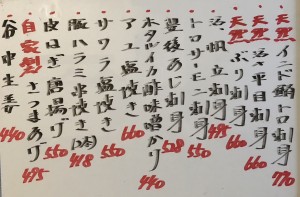 天然 インド鮪トロ刺身 770
天然 活〆平目刺身 660
天然 ぶり刺身 660
トロサーモン刺身 495
活〆帆立刺身 550
豊後あじ刺身 528
ホタルイカ酢味噌がけ 440
アユ塩焼き 660
サワラ塩焼き 550
豚ハラミ串焼き(2本) 418
皮はぎ唐揚げ 550
自家製 さつまあげ 495
谷中生姜 440